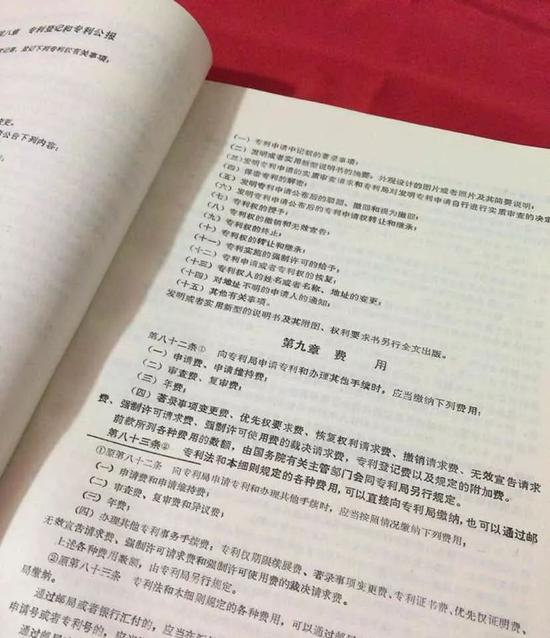 第八章 专利登记和专利公报
登记下列专利权有关事项：
变更。
公告下列内容：
(一) 专利申请中记载的著录事项；
(二) 发明或者实用新型说明书的摘要，外观设计的图片或者照片及其简要说明；
(三) 发明专利申请的实质审查请求和专利局对发明专利申请自行进行实质审查的决定
(四) 保密专利的解密；
(五) 发明专利申请公布后的驳回、撤回和视为撤回；
(六) 发明专利申请公布后的专利申请权转让和继承；
(七) 专利权的授予；
(八) 专利权的撤销和无效宣告；
(九) 专利权的终止；
(十) 专利权的转让和继承；
(十一) 专利实施的强制许可的给予；
(十二) 专利申请或者专利权的恢复；
(十三) 专利权人的姓名或者名称、地址的变更；
(十四) 对地址不明的申请人的通知；
(十五) 其他有关事项。
发明或者实用新型的说明书及其附图、权利要求书另行全文出版。
第九章 费 用
第八十二条① 向专利局申请专利和办理其他手续时，应当缴纳下列费用：
(一) 申请费、申请维持费；
(二) 审查费、复审费；
(三) 年费；
(四) 著录事项变更费、优先权要求费、恢复权利请求费、撤销请求费、无效宣告请求
费、强制许可请求费、强制许可使用费的裁决请求费、专利登记费以及规定的附加费。
前款所列各种费用的数额，由国务院有关主管部门会同专利局另行规定。
第八十三条② 专利法和本细则规定的各种费用，可以直接向专利局缴纳，也可以通过邮
①原第八十二条 向专利局申请专利和办理其他手续时，应当按照情况缴纳下列费用：
(一) 申请费和申请维持费；
(二) 审查费、复审费和异议费；
(三) 年费；
(四) 办理其他专利事务手续费，专利权期限续展费、著录事项变更费、专利证书费、优先权证明费、
无效宣告请求费、强制许可请求费和强制许可使用费的裁决请求费。
上述各种费用数额，由专利局另行规定。
②原第八十三条 专利法和本细则规定的各种费用，可以
局缴纳。
通过邮局或者银行汇付的，应当在
申请号或者专利号的，应
通过邮局